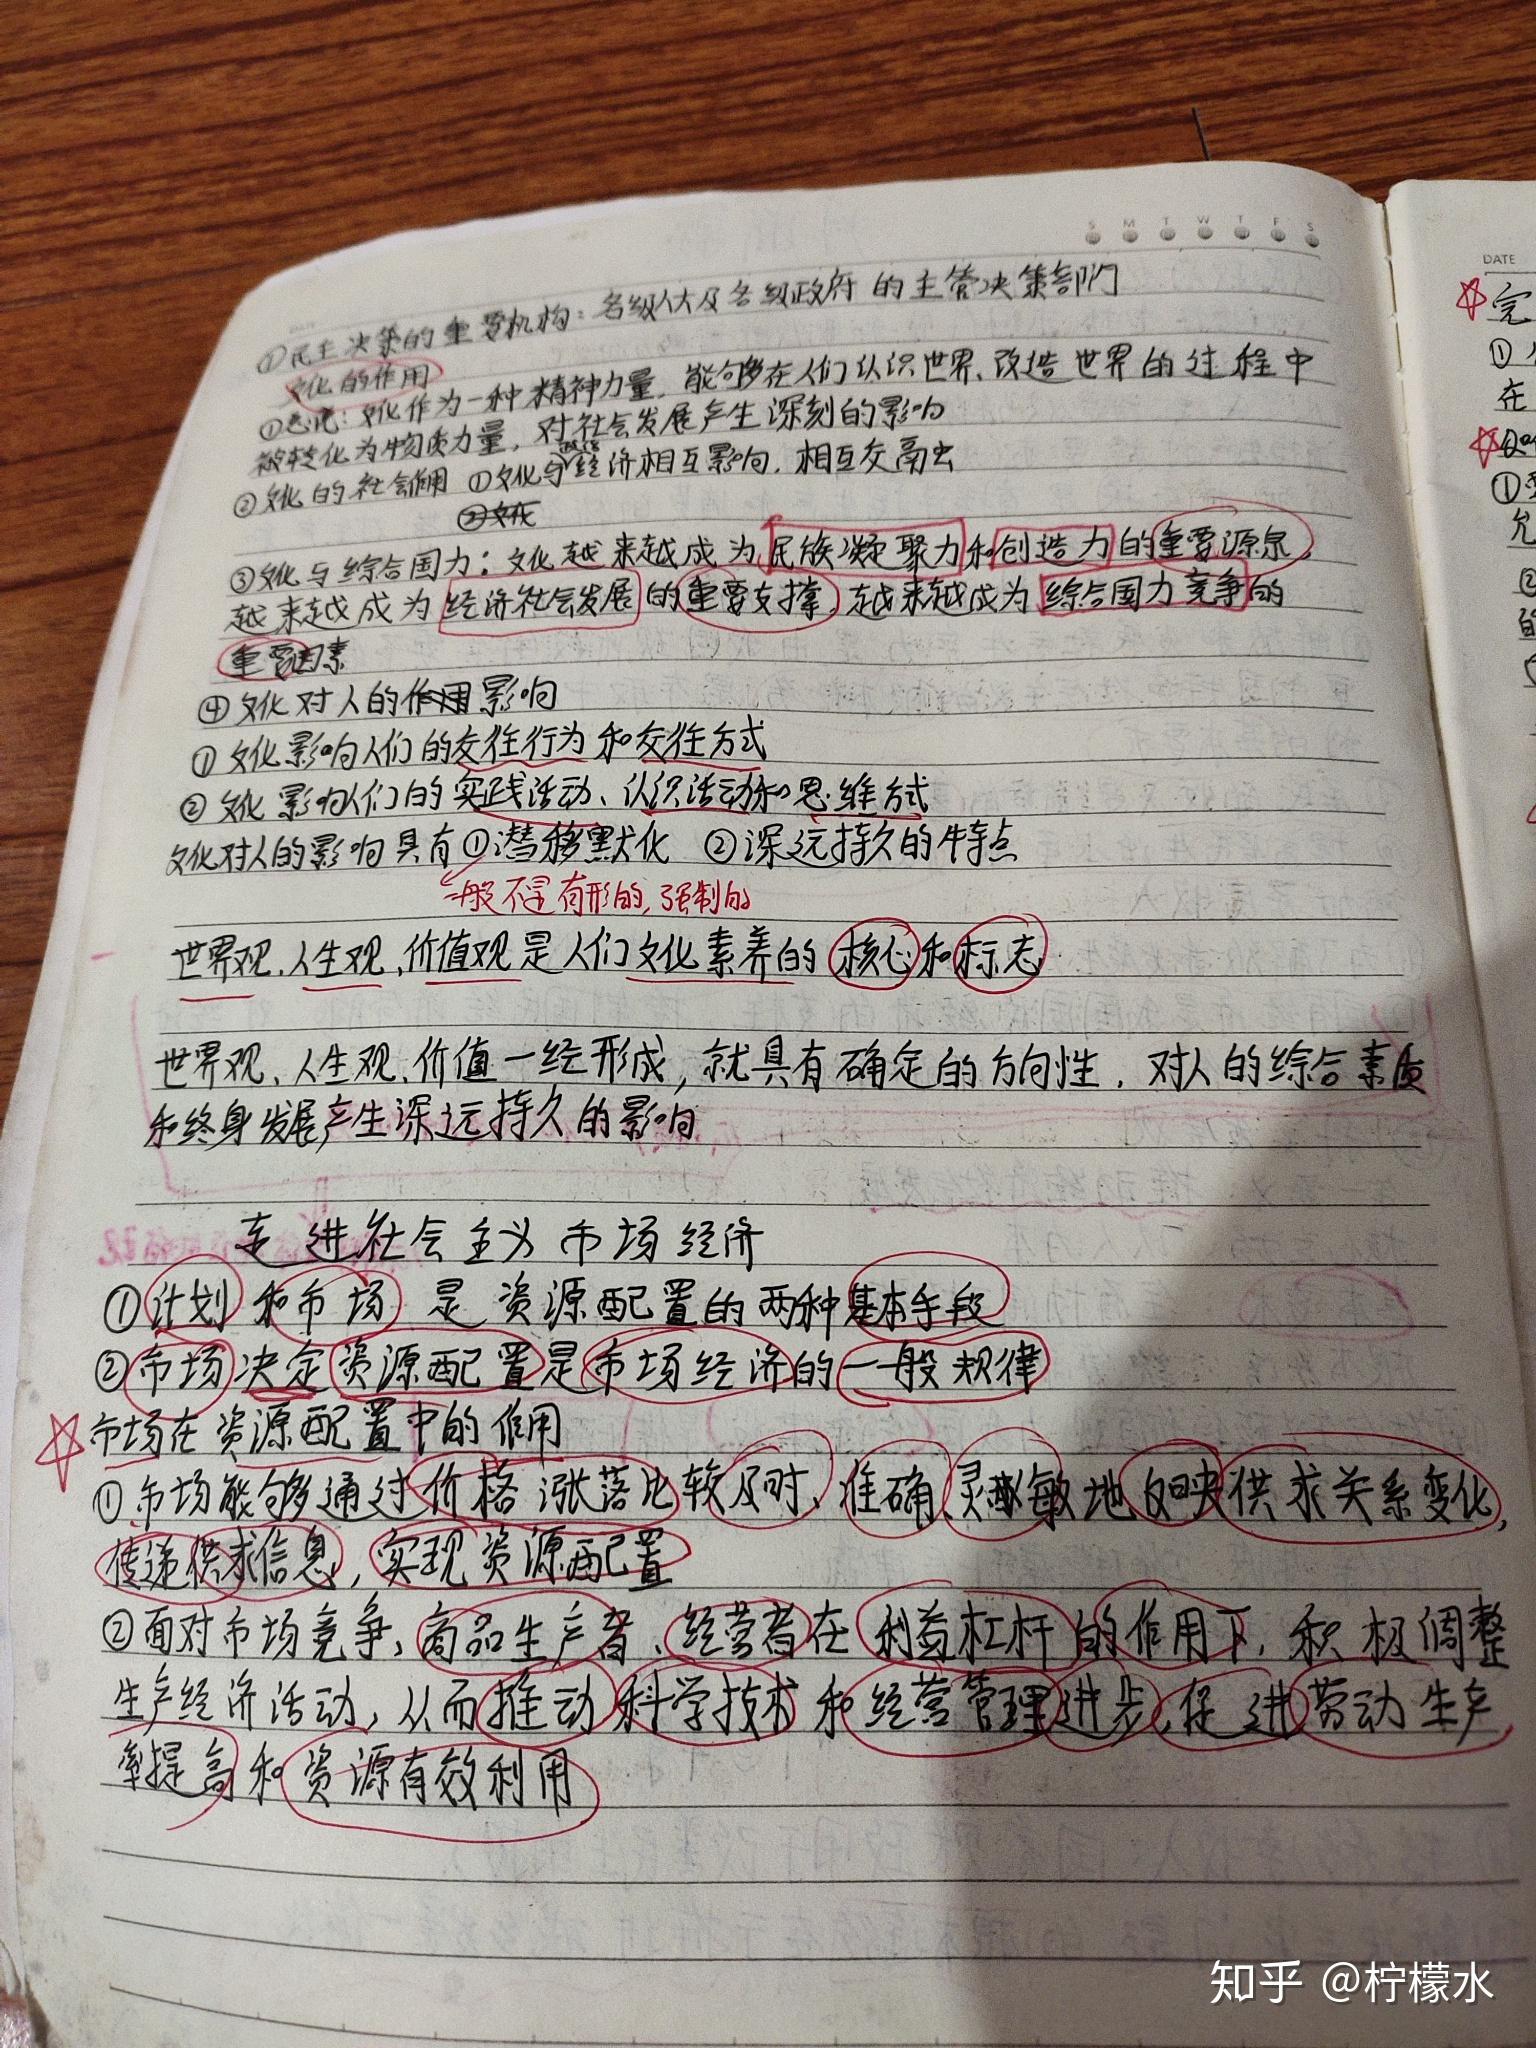 S M T W T F S
①民主决策的重要机构：各级人大及各级政府的主管决策部门
文化的作用
①总说：文化作为一种精神力量，能够在人们认识世界、改造世界的过程中
被转化为物质力量，对社会发展产生深刻的影响
②文化的社会作用 ①文化与政治经济相互影响，相互交融
②文化
③文化与综合国力：文化越来越成为民族凝聚力和创造力的重要源泉，
越来越成为经济社会发展的重要支撑，越来越成为综合国力竞争的
重要因素
④文化对人的作用影响
①文化影响人们的交往行为和交往方式
②文化影响人们的实践活动、认识活动和思维方式
文化对人的影响具有①潜移默化 ②深远持久的特点
一般不是有形的，强制的
世界观、人生观、价值观是人们文化素养的核心和标志
世界观、人生观、价值一经形成，就具有确定的方向性，对人的综合素质
和终身发展产生深远持久的影响
走进社会主义市场经济
①计划和市场是资源配置的两种基本手段
②市场决定资源配置是市场经济的一般规律
市场在资源配置中的作用
①市场能够通过价格涨落比较及时、准确、灵敏地反映供求关系变化，
传递供求信息，实现资源配置
②面对市场竞争，商品生产者、经营者在利益杠杆的作用下，积极调整
生产经济活动，从而推动科学技术和经营管理进步，促进劳动生产
率提高和资源有效利用
DATE
完
①
在
①
允
②
的
知乎 @柠檬水